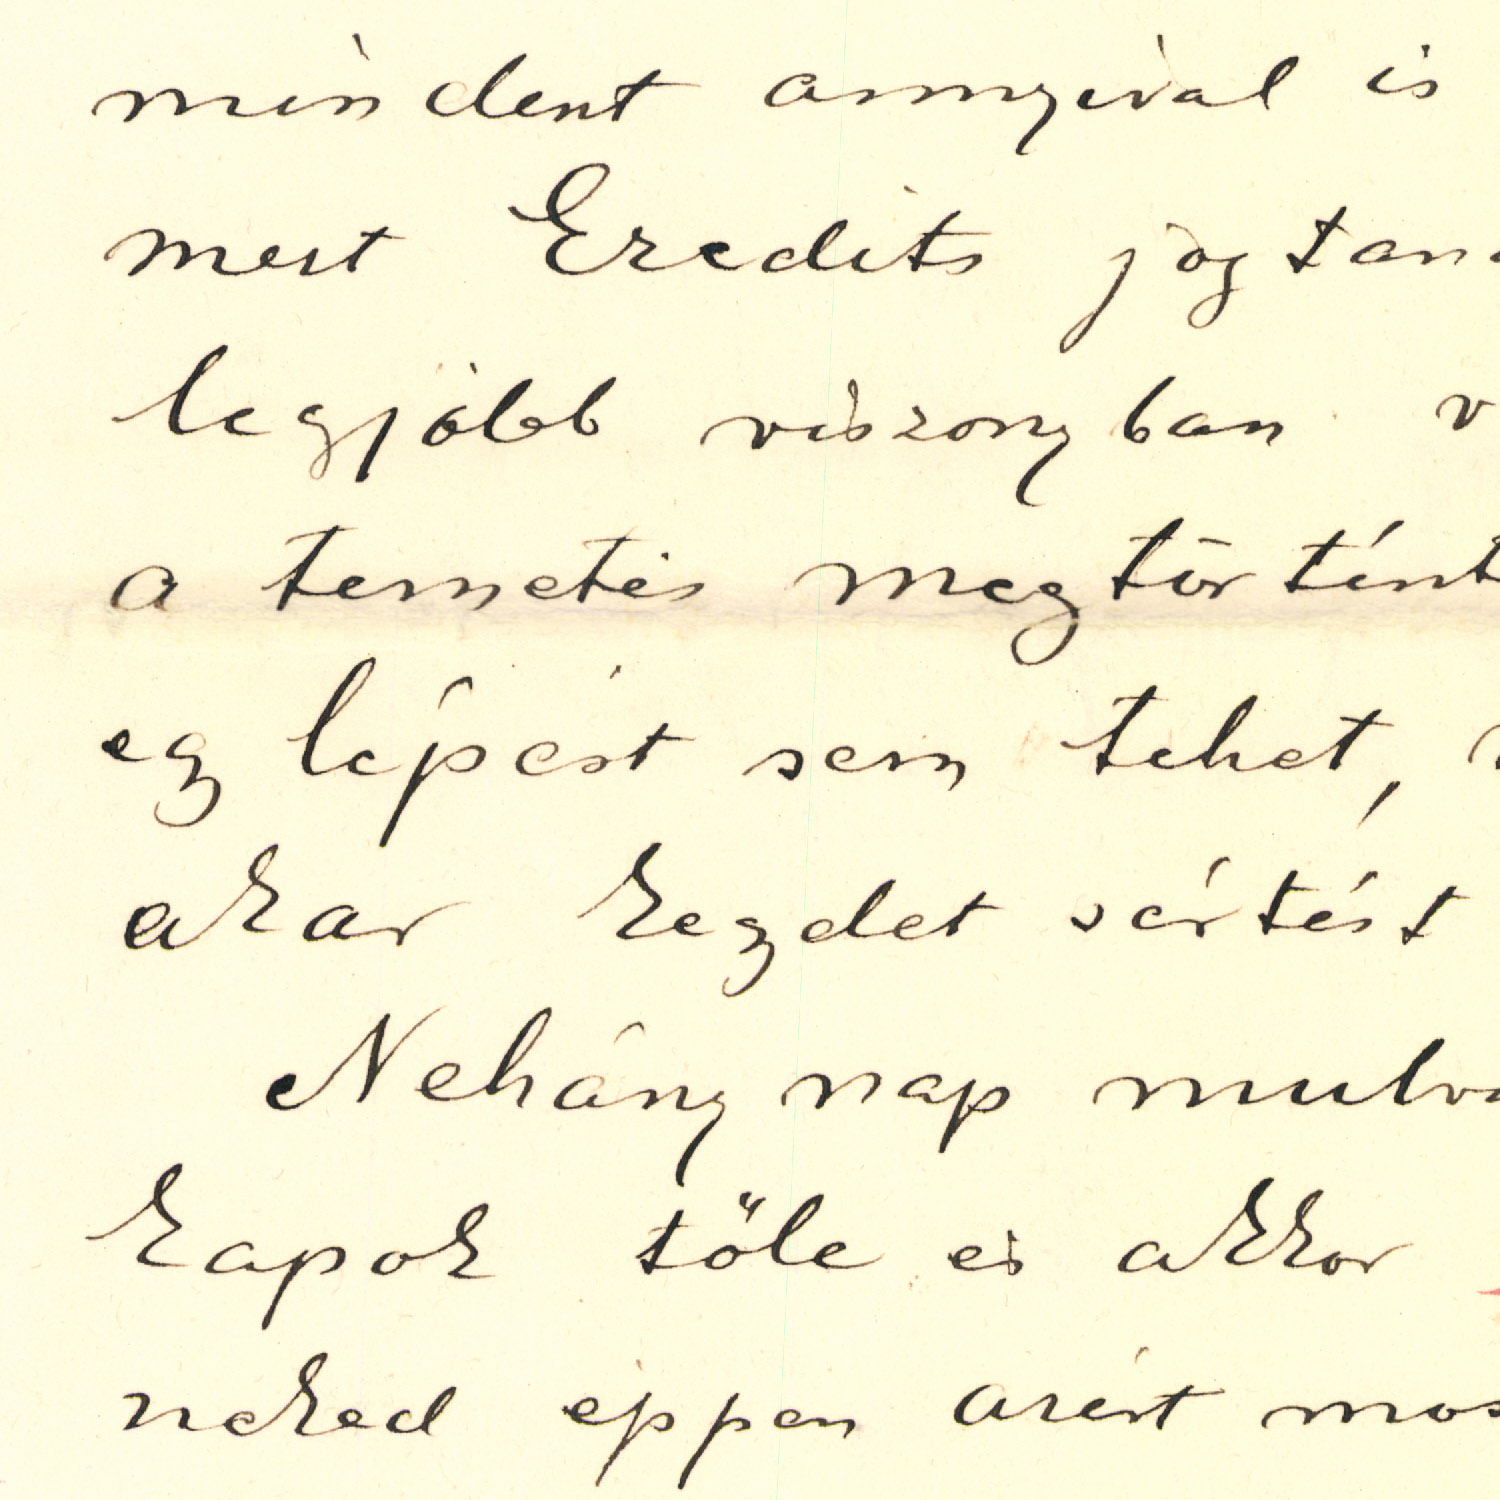 mindent annyival is
mert Eredits jogtaná
legjobb viszonyban v
a temetés megtörtént
egy lépést sem tehet,
akar kezdet sértést
Nehány nap mulva
kapok tőle és akkor
neked éppen azért mos